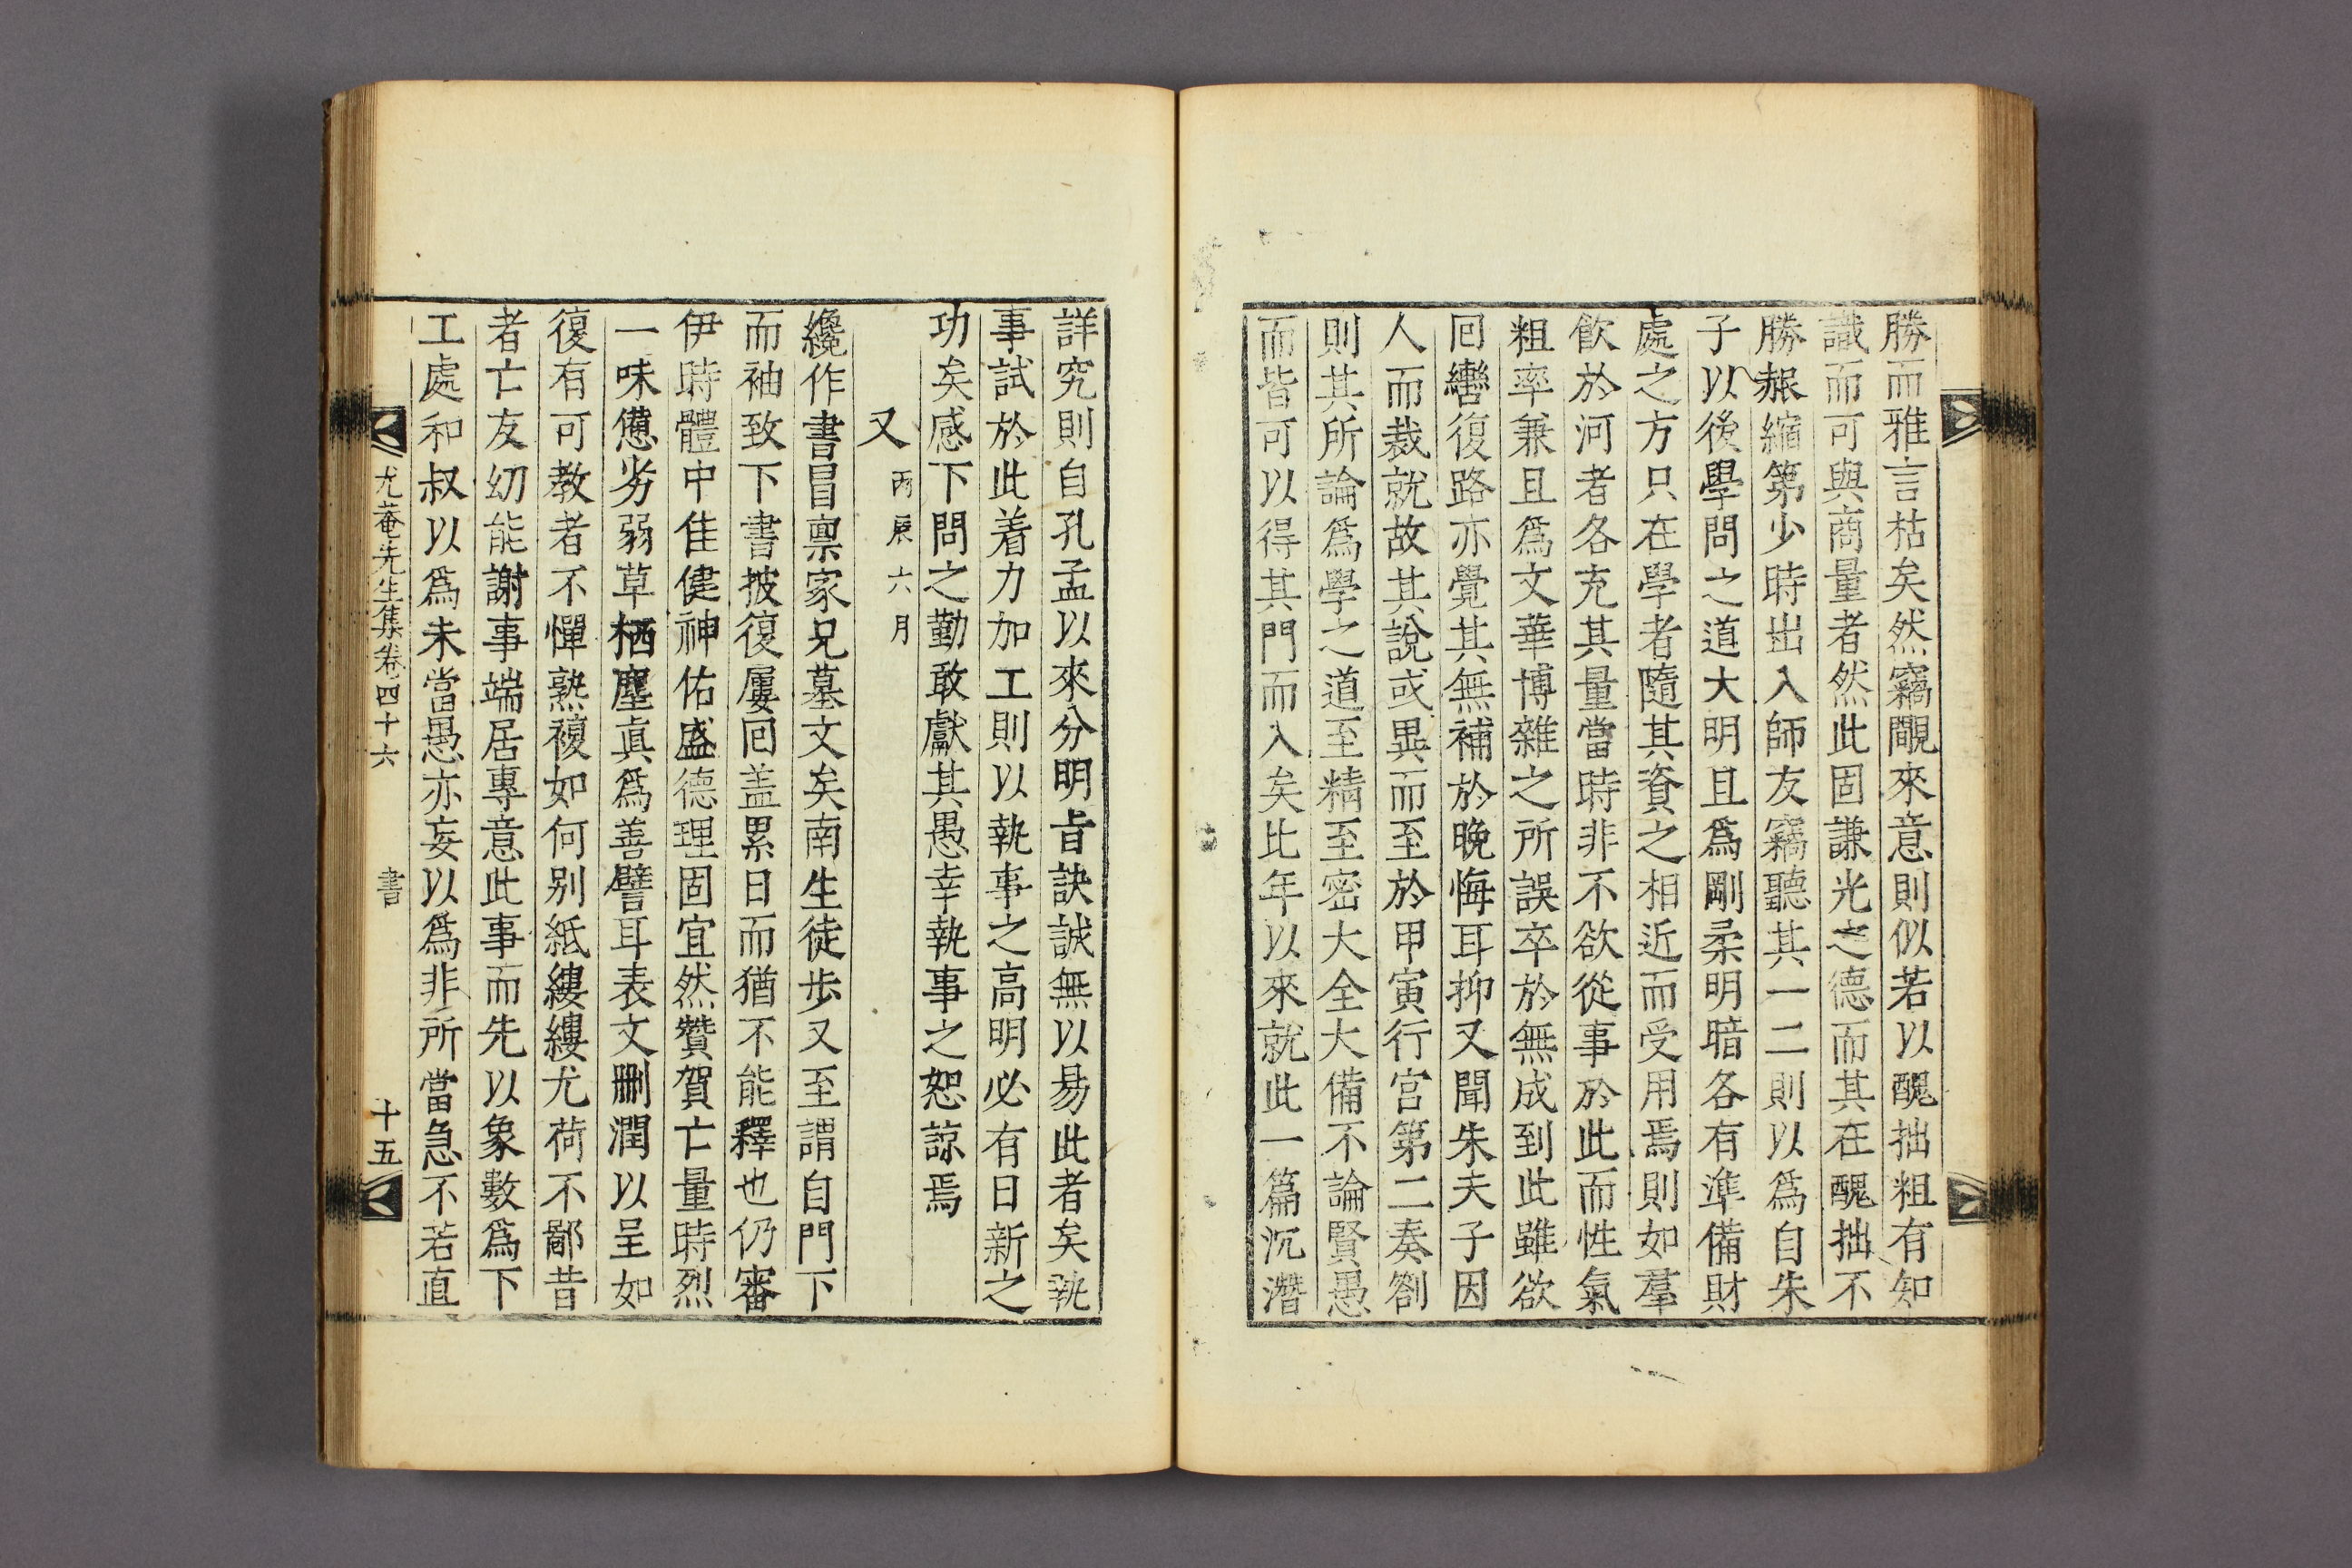 勝而雅言枯矣然竊覸來意則似若以醜拙粗有知
識而可與商量者然此固謙光之德而其在醜拙不
勝赧縮第少時出入師友竊聽其一二則以爲自朱
子以後學問之道大明且爲剛柔明暗各有準備財
處之方只在學者隨其資之相近而受用焉則如羣
飮於河者各充其量當時非不欲從事於此而性氣
粗率兼且爲文華博雜之所誤卒於無成到此雖欲
回轡復路亦覺其無補於晚悔耳抑又聞朱夫子因
人而裁就故其說或異而至於甲寅行宮第二奏劄
則其所論爲學之道至精至密大全大備不論賢愚
而皆可以得其門而入矣比年以來就此一篇沉潛
詳究則自孔孟以來分明旨訣誠無以易此者矣執
事試於此着力加工則以執事之高明必有日新之
功矣感下問之勤敢獻其愚幸執事之恕諒焉
又 丙辰六月
纔作書冒稟家兄墓文矣南生徒步又至謂自門下
而袖致下書披復屢回盖累日而猶不能釋也仍審
伊時體中佳健神佑盛德理固宜然贊賀亡量時烈
一味憊劣弱草栖塵眞爲善譬耳表文删潤以呈如
復有可教者不憚熟複如何別紙縷縷尤荷不鄙昔
者亡友幼能謝事端居專意此事而先以象數爲下
工處和叔以爲未當愚亦妄以爲非所當急不若直
尤菴先生集卷四十六 書 十五